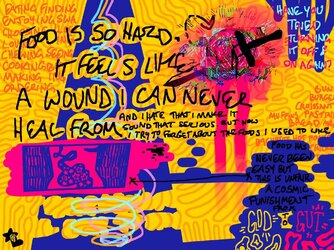 EATING FINDING
ENJOYING
CHEWING
COOKING
MAKING
ORDERING
HAVE YOU
TRIED
TURNING
IT OFF &
ON AGAIN?
FOOD IS SO HARD.
IT FEELS LIKE
A WOUND I CAN NEVER
HEAL FROM
AND I HATE THAT I MAKE IT
SOUND THAT SERIOUS BUT NOW
I TRY TO FORGET ABOUT THE FOODS I USED TO LIKE
BUN
BURGER
CROISSANT
MUFFIN
PASTA
BREAD
FOOD HAS
NEVER BEEN
EASY BUT
THIS IS UNFAIR
A COSMIC
PUNISHMENT
FROM
GOD
GUT